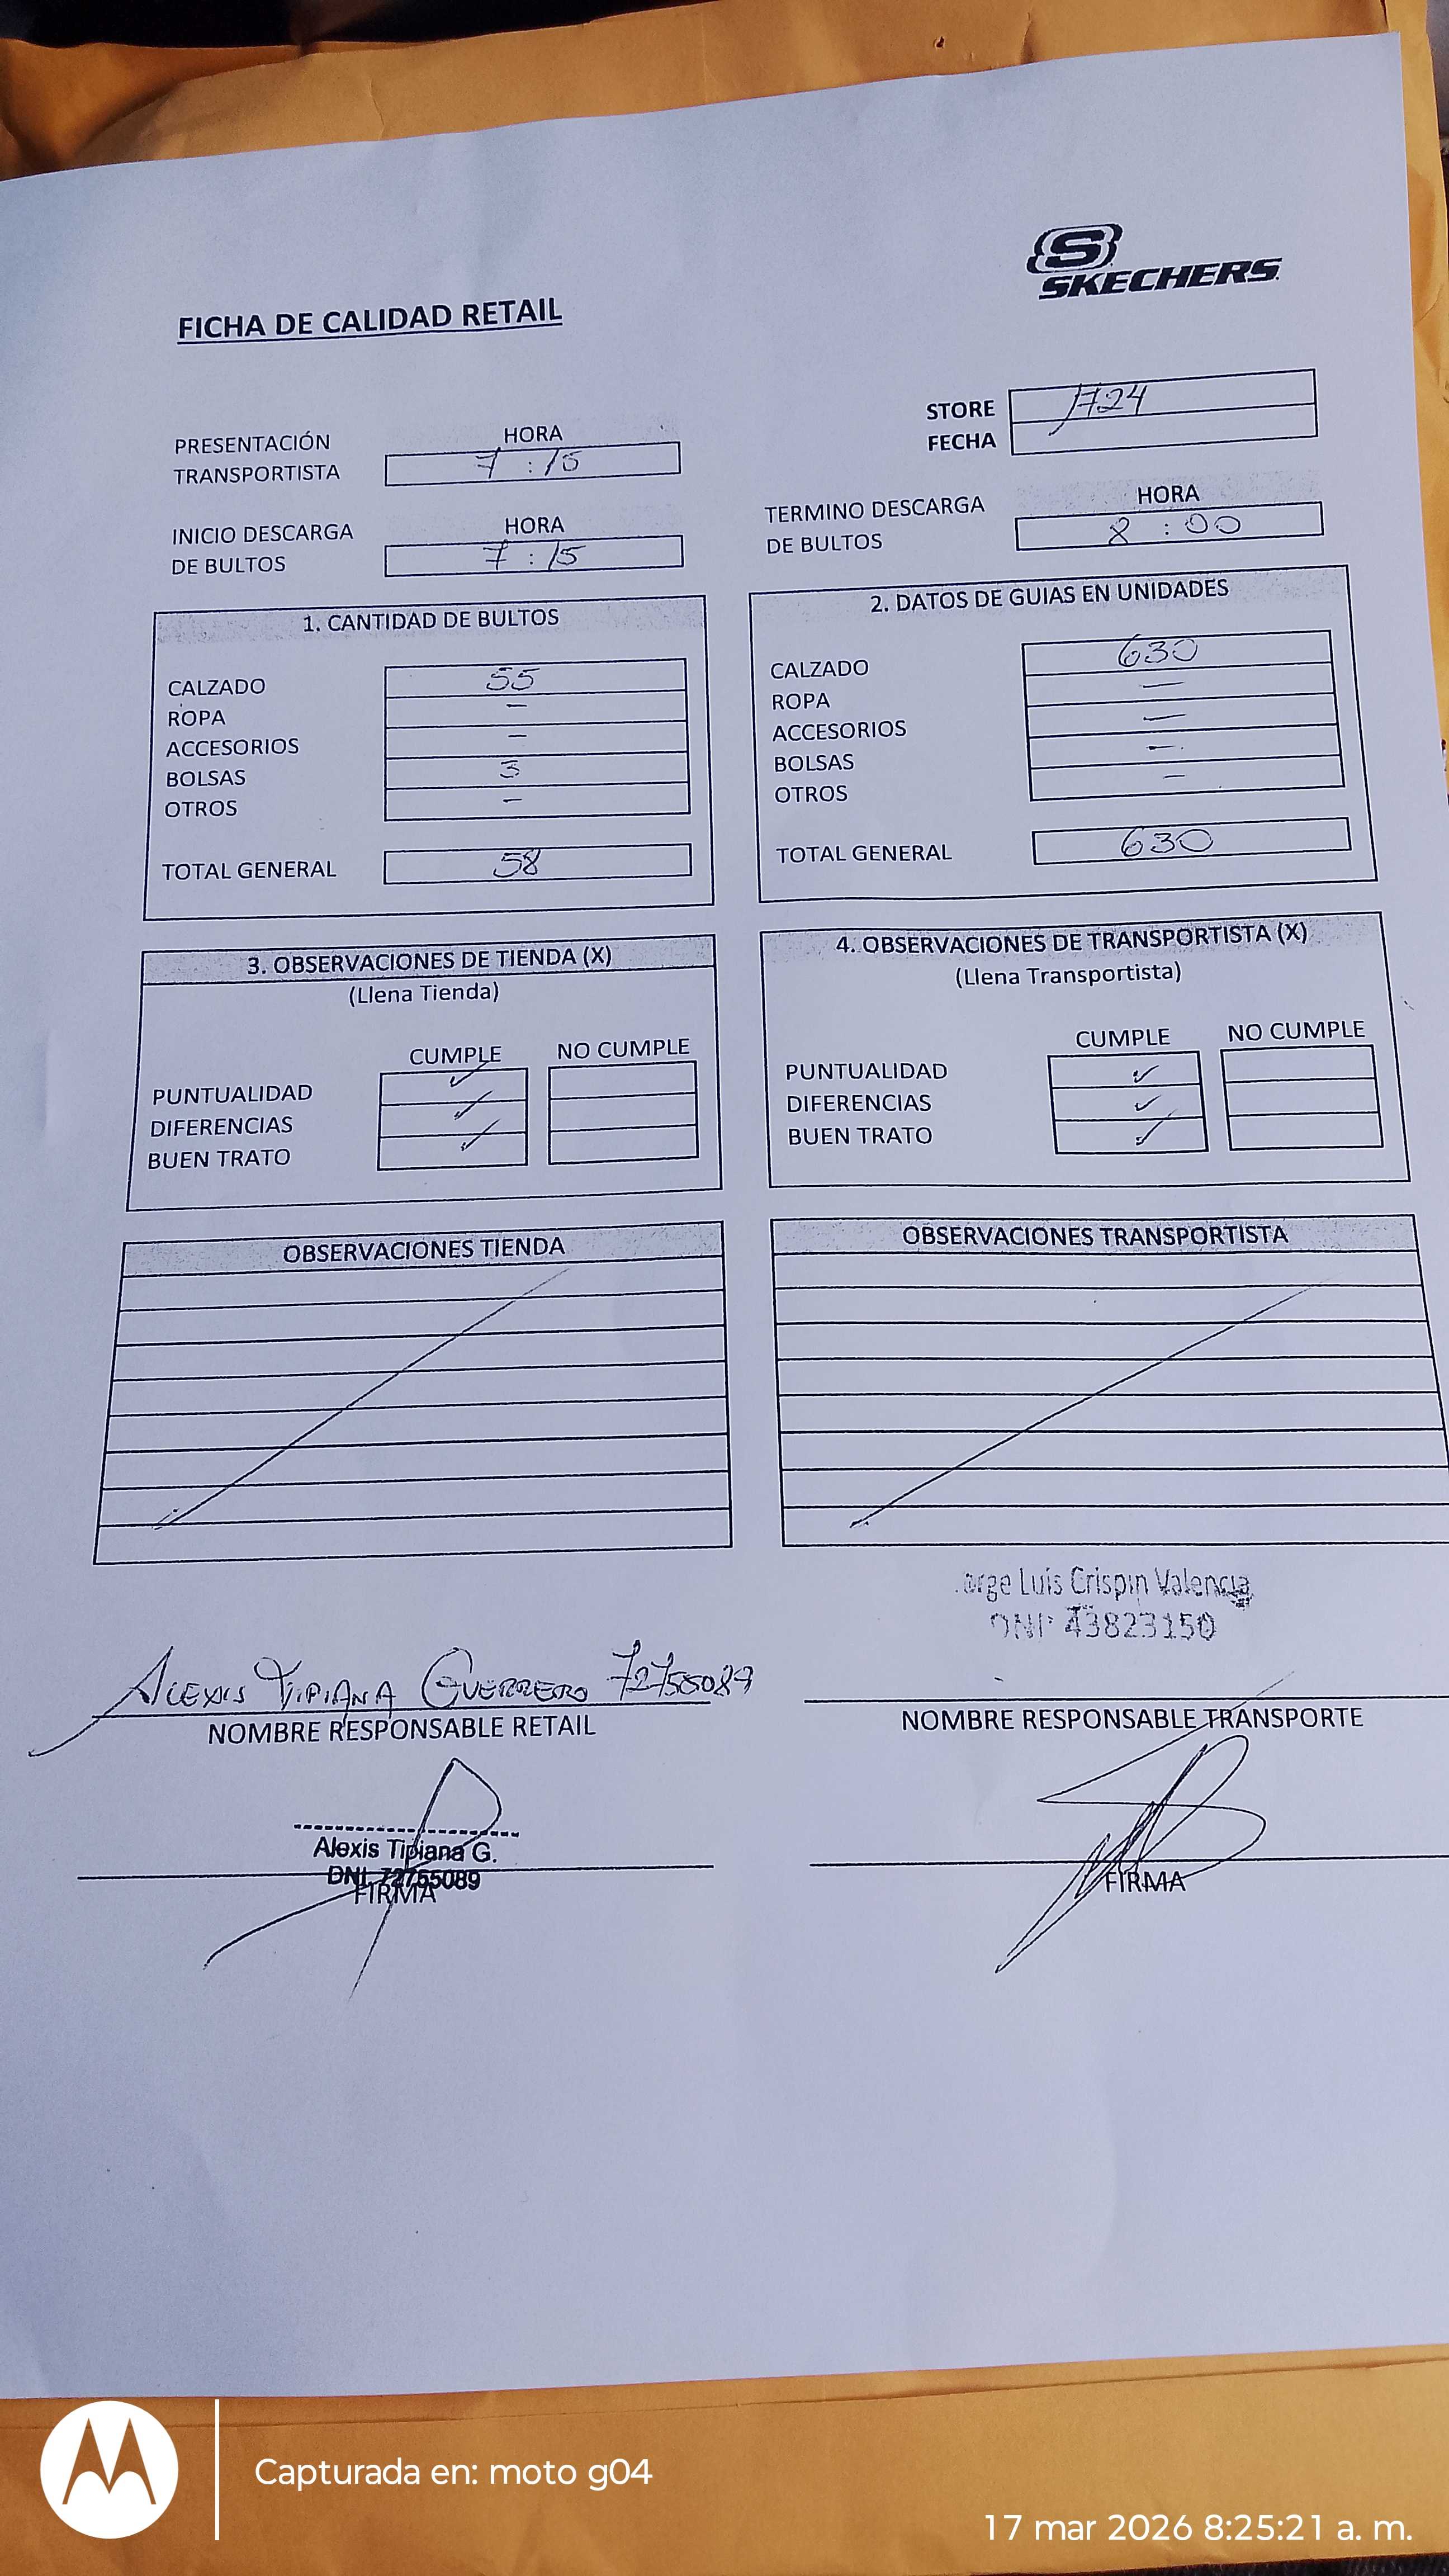 SKECHERS
FICHA DE CALIDAD RETAIL
STORE 1724
FECHA
PRESENTACIÓN TRANSPORTISTA HORA 7:15
INICIO DESCARGA DE BULTOS HORA 7:15
TERMINO DESCARGA DE BULTOS HORA 8:00
1. CANTIDAD DE BULTOS
CALZADO 55
ROPA -
ACCESORIOS -
BOLSAS 3
OTROS -
TOTAL GENERAL 58
2. DATOS DE GUIAS EN UNIDADES
CALZADO 630
ROPA -
ACCESORIOS -
BOLSAS -
OTROS -
TOTAL GENERAL 630
3. OBSERVACIONES DE TIENDA (X)
(Llena Tienda)
CUMPLE NO CUMPLE
PUNTUALIDAD ✓
DIFERENCIAS ✓
BUEN TRATO ✓
4. OBSERVACIONES DE TRANSPORTISTA (X)
(Llena Transportista)
CUMPLE NO CUMPLE
PUNTUALIDAD ✓
DIFERENCIAS ✓
BUEN TRATO ✓
OBSERVACIONES TIENDA
OBSERVACIONES TRANSPORTISTA
ALEXIS TIPIANA GUERRERO 72755089
NOMBRE RESPONSABLE RETAIL
Alexis Tipiana G.
DNI. 72755089
FIRMA
orge Luis Crispin Valencia
DNI: 43823150
NOMBRE RESPONSABLE TRANSPORTE
FIRMA
Capturada en: moto g04
17 mar 2026 8:25:21 a. m.